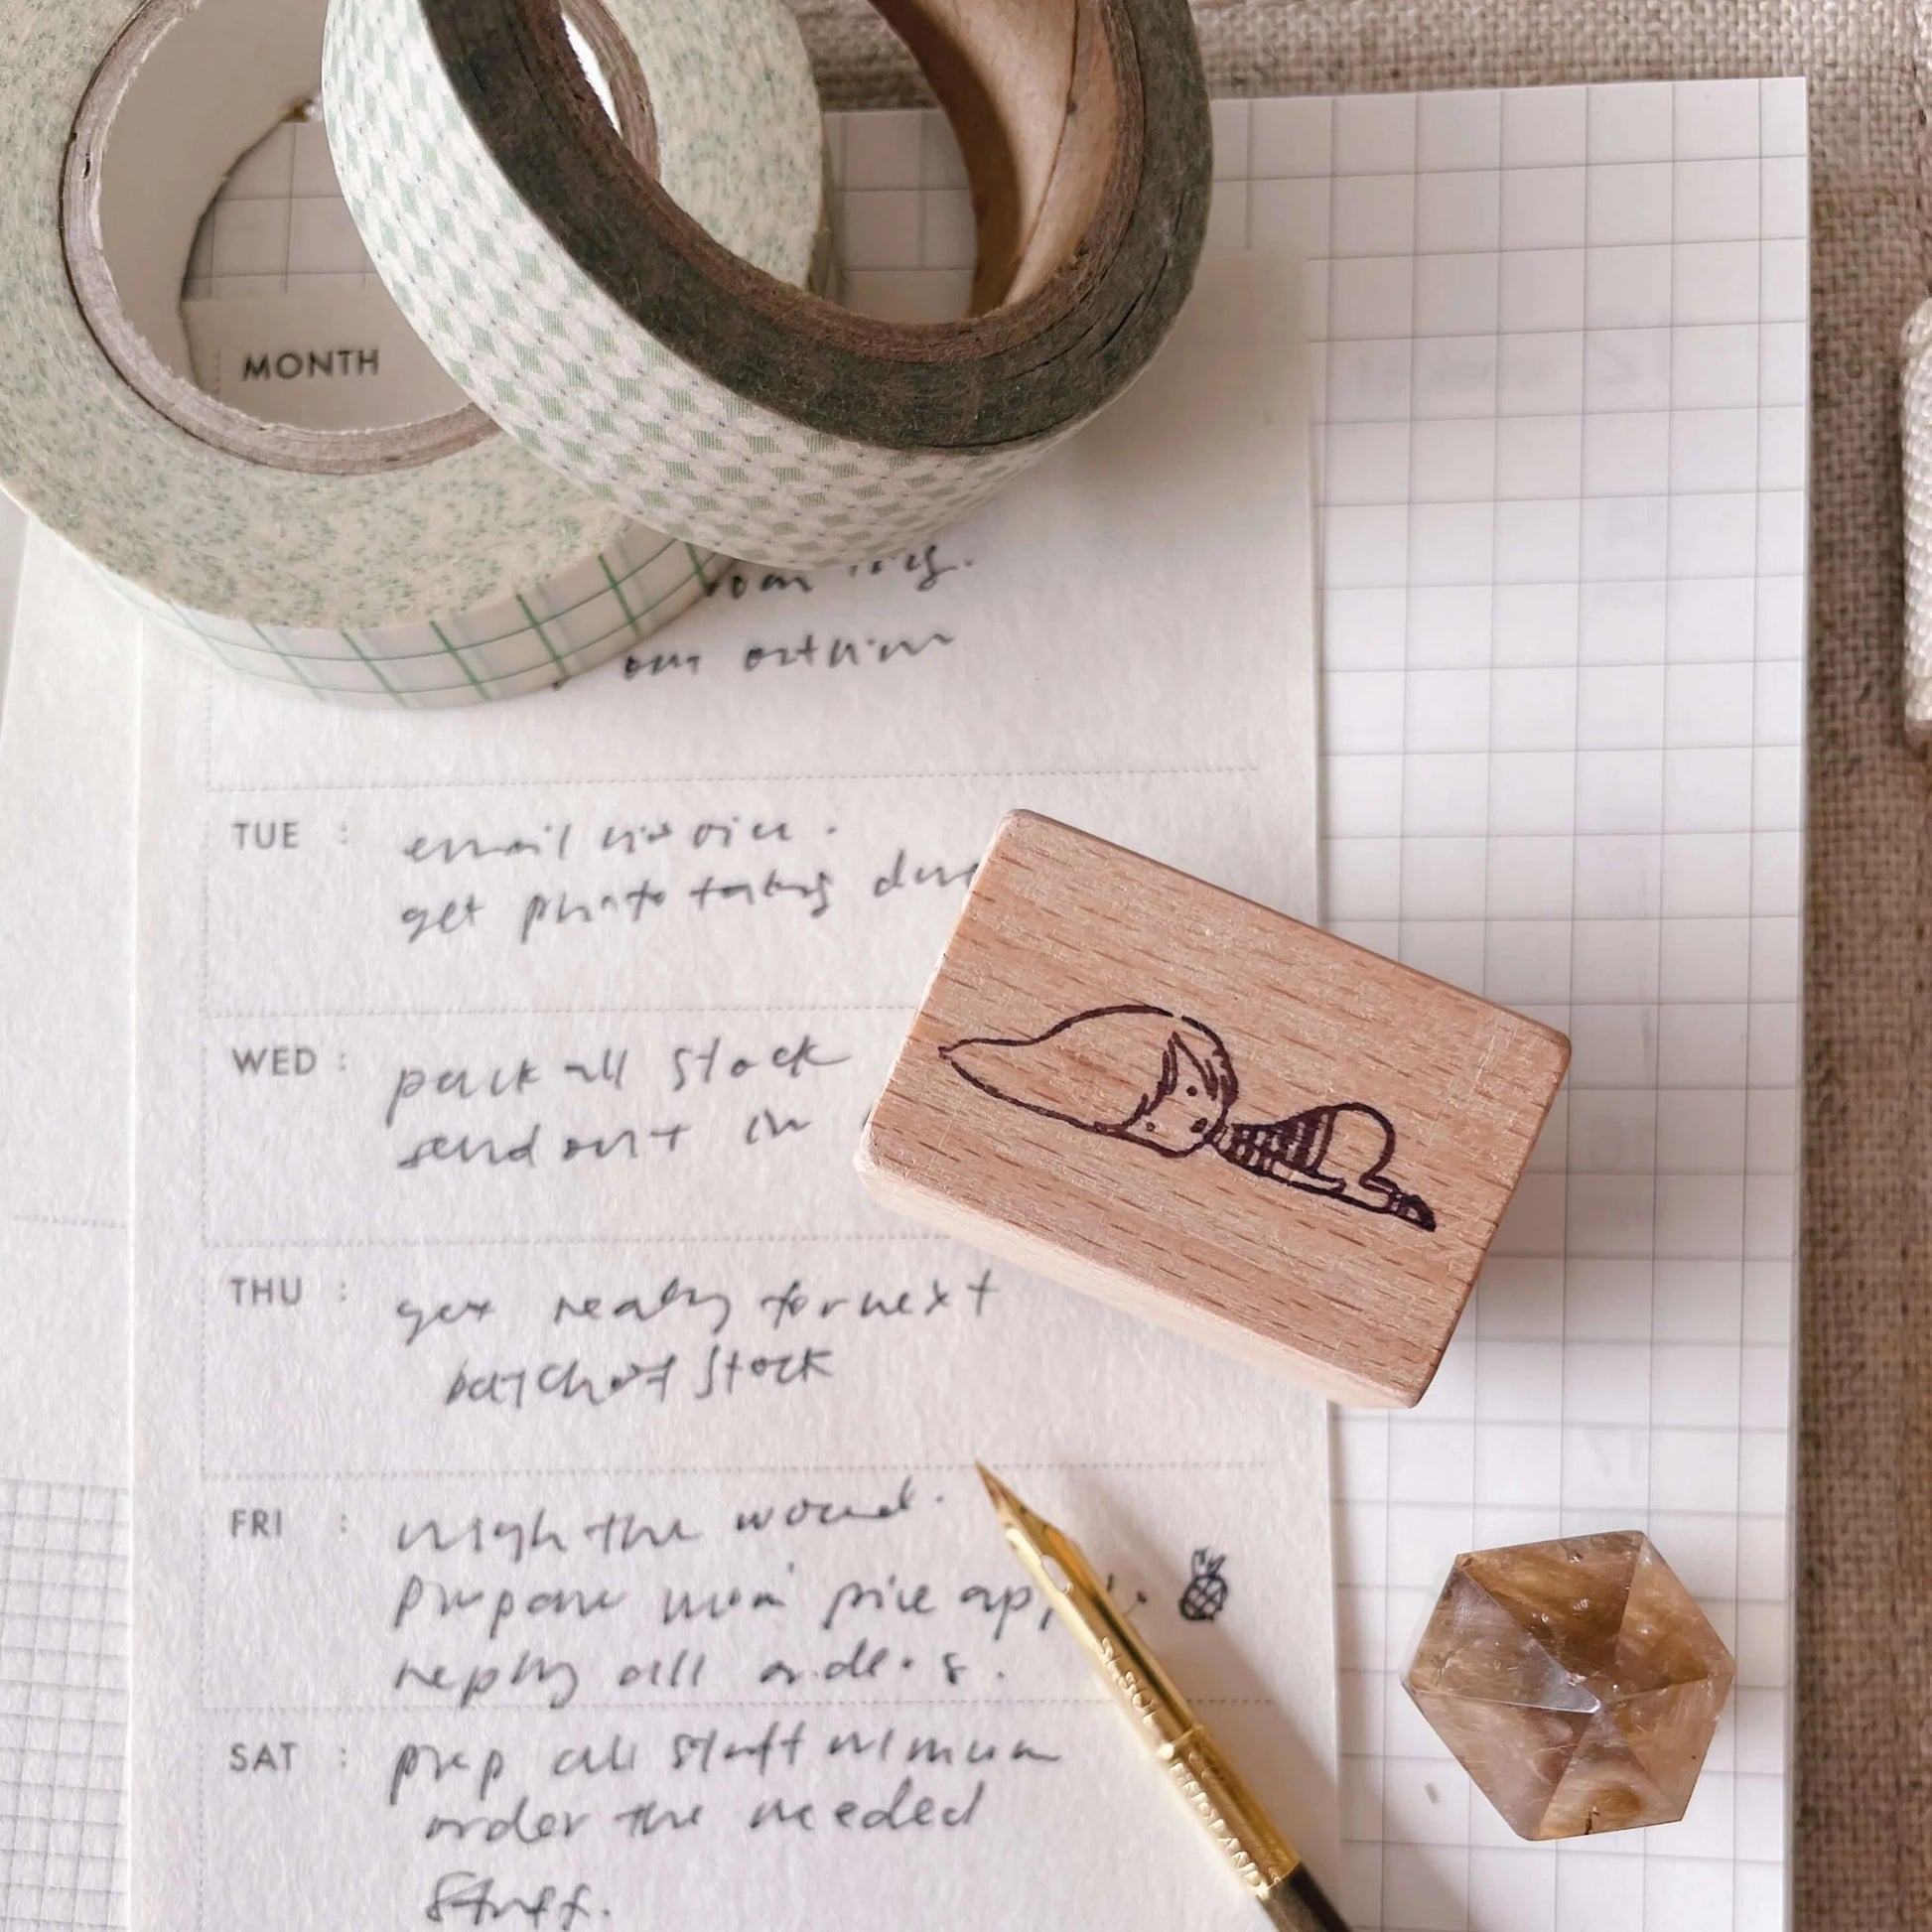 MONTH
TUE :
email invoice.
get photo taking
WED :
pack all stock
send out in
THU :
get ready for next
batch of stock
FRI :
weigh the wood.
prepare mom pine
reply all orders.
SAT :
prep all stuff
order the needed
stuff.
ENGLAND